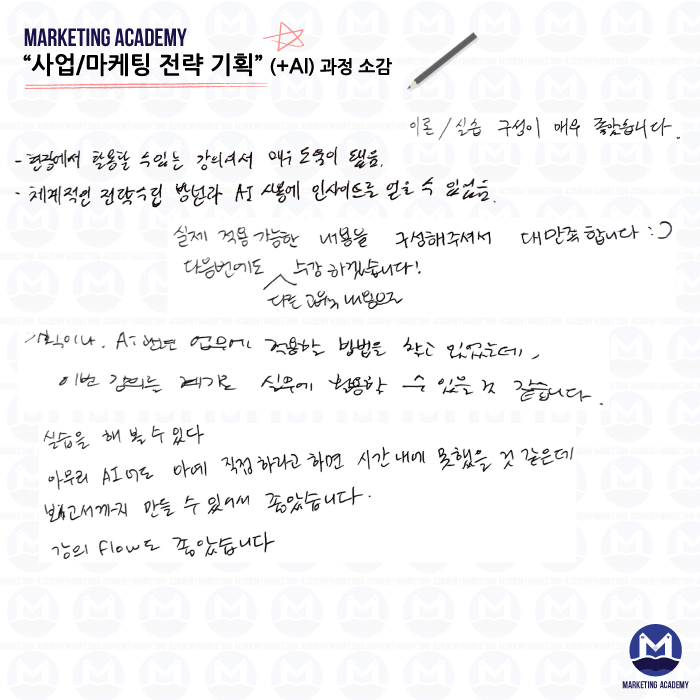 MARKETING ACADEMY
“사업/마케팅 전략 기획” (+AI) 과정 소감
이론 / 실습 구성이 매우 좋았습니다.
- 현장에서 활용할 수 있는 강의여서 매우 도움이 됐음.
- 체계적인 전략수립 방법과 AI 사용에 인사이트를 얻을 수 있었음.
실제 적용 가능한 내용을 구성해주셔서 대만족합니다 :)
다음번에도 수강하겠습니다!
다른 교육 내용으로
AI 관련 업무에 적용할 방법을 찾고 있었는데,
이번 강의는 계기로 실무에 활용할 수 있을 것 같습니다.
실습을 해 볼 수 있다
아무리 AI여도 아예 직접하라고 하면 시간 내에 못했을 것 같은데
보고서까지 만들 수 있어서 좋았습니다.
강의 Flow도 좋았습니다
MARKETING ACADEMY